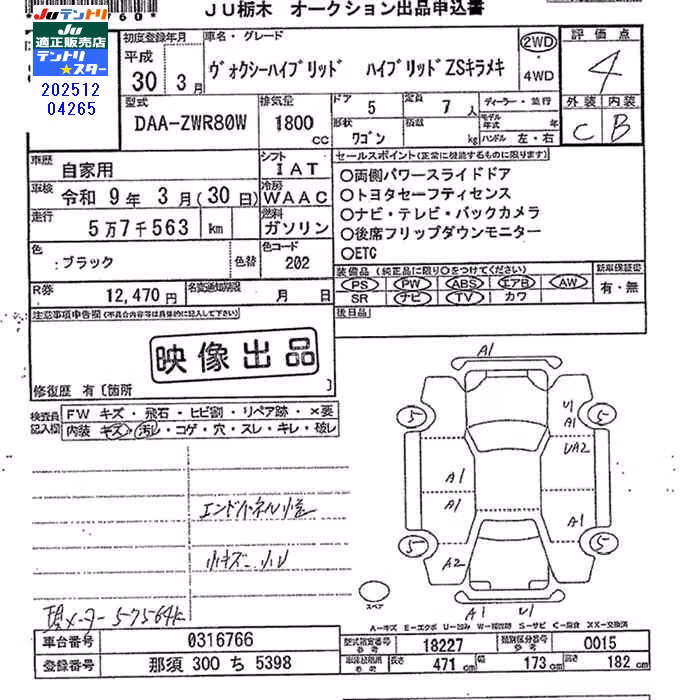 JU栃木 オークション出品申込書
Juテントリ
JU 適正販売店
テントリ
★スター
202512
04265
初度登録年月
平成
30 3月
車名・グレード
ヴォクシーハイブリッド ハイブリッドZSキラメキ
2WD
・
4WD
評価点
4
外装 内装
C B
型式
DAA-ZWR80W
排気量
1800 cc
ドア 5
定員 7 人
形状 ワゴン
積載 kg
ディーラー・並行
モデル年式 年
ハンドル 左・右
車歴 自家用
シフト IAT
車検 令和 9年 3月(30日)
冷房 WAAC
走行 5万7千563 km
燃料 ガソリン
色 :ブラック 色替
色コード 202
R券 12,470円
名変通知期限 月 日
セールスポイント(正常に機能するものに限ります)
○両側パワースライドドア
○トヨタセーフティセンス
○ナビ・テレビ・バックカメラ
○後席フリップダウンモニター
○ETC
装備品(純正品に限り○をつけてください)
新車保証書
PS PW ABS エアB AW
SR ナビ TV カワ
有・無
後日品
注意事項申告欄(不具合内容等は具体的に記入して下さい)
映像出品
修復歴 有〔箇所 〕
検査員記入欄
FW キズ・飛石・ヒビ割・リペア跡・×要
内装 キズ・汚レ・コゲ・穴・スレ・キレ・破レ
小キズ
現メーター57564k
A1
5
5
U1
A1
UA2
A1
A1
A1
5
5
A2
A1 U1
スペア
A-キズ E-エクボ U-凹み W-補修跡 S-サビ C-腐食 XX-交換済
車台番号 0316766
登録番号 那須 300 ち 5398
型式指定番号 参考 18227
類別区分番号 参考 0015
長さ 471 cm
幅 173 cm
高さ 182 cm